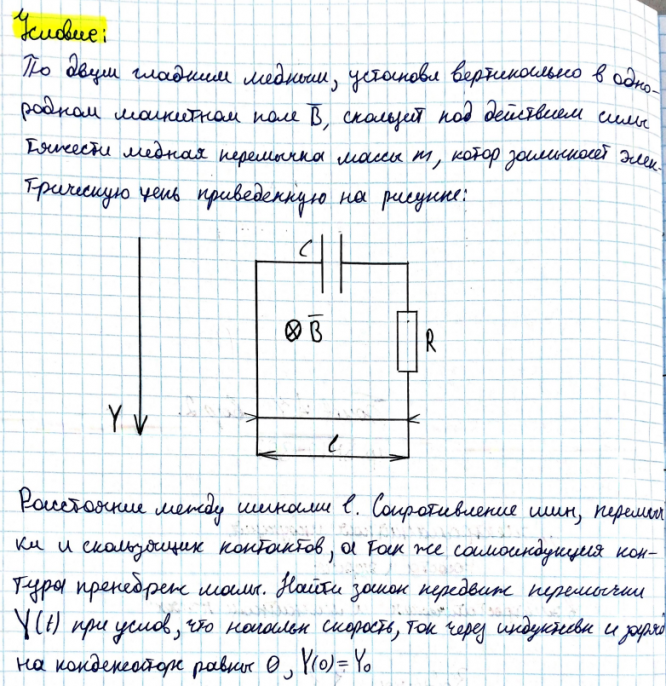 Условие:
По двум гладким медным, установл вертикально в одно-
родном магнитном поле B̅, скользит под действием силы
тяжести медная перемычка массы m, котор замыкает элек-
трическую цепь приведенную на рисунке:
C
⊗ B̅
R
Y
l
Расстояние между шинами l. Сопротивление шин, перемыч
ки и скользящих контактов, а так же самоиндукция кон-
тура пренебреж малы. Найти закон передвиж перемычки
Y(t) при услов, что начальн скорость, ток через индуктивн и заряд
на конденсаторе равны 0, Y(0)=Y₀